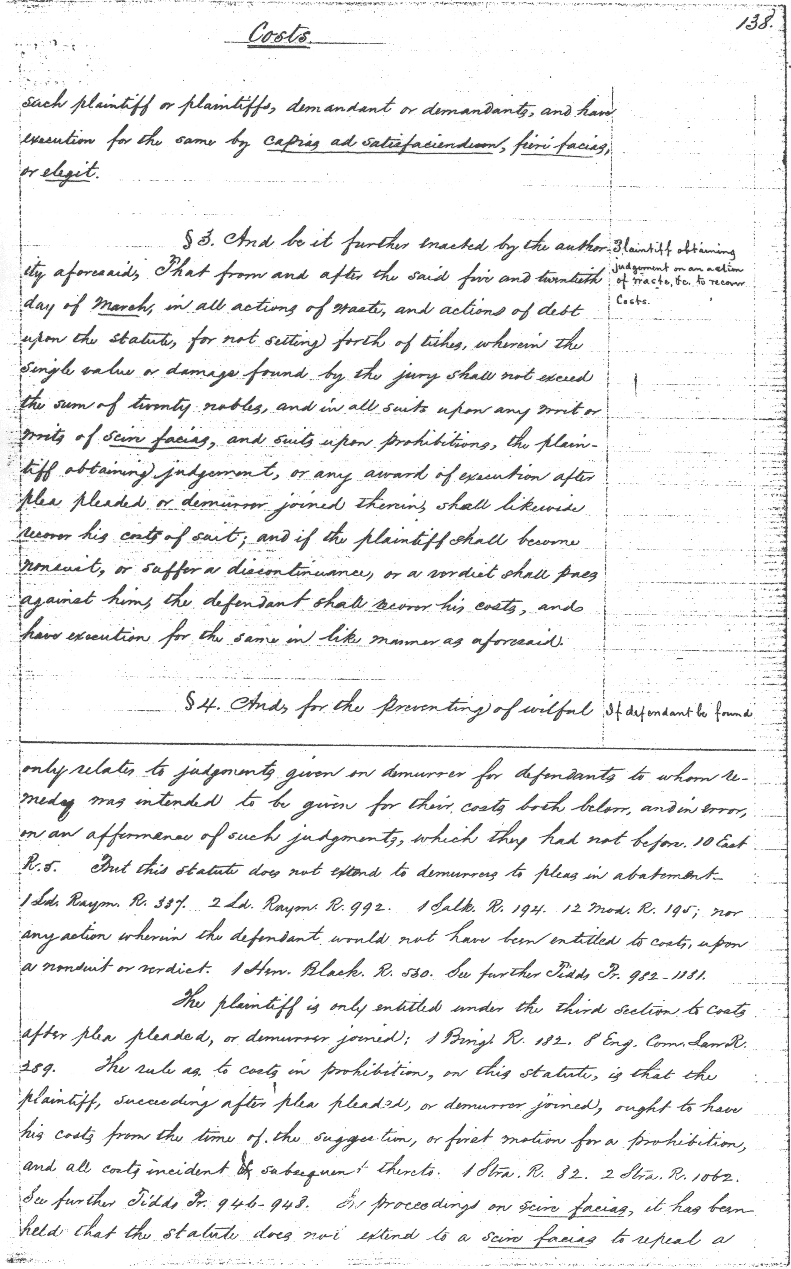 138.
Costs.
such plaintiff or plaintiffs, demandant or demandants, and have
execution for the same by capias ad satisfaciendum, fieri facias,
or elegit.
§ 3. And be it further enacted by the author-
ity aforesaid, That from and after the said five and twentieth
day of March, in all actions of waste, and actions of debt
upon the statute, for not setting forth of tithes, wherein the
single value or damage found by the jury shall not exceed
the sum of twenty nobles, and in all suits upon any writ or
writs of scire facias, and suits upon prohibitions, the plain-
tiff obtaining judgement, or any award of execution after
plea pleaded or demurrer joined therein, shall likewise
recover his costs of suit; and if the plaintiff shall become
nonsuit, or suffer a discontinuance, or a verdict shall pass
against him, the defendant shall recover his costs, and
have execution for the same in like manner as aforesaid.
Plaintiff obtaining
judgement on an action
of waste, &c. to recover
Costs.
§ 4. And, for the preventing of wilful
If defendant be found
only relates to judgments given on demurrer for defendants to whom re-
medy was intended to be given for their costs both below, and in error,
on an affirmance of such judgments, which they had not before. 10 East
R. 5. But this statute does not extend to demurrers to pleas in abatement
1 Ld. Raym. R. 337. 2 Ld. Raym. R. 992. 1 Salk. R. 194. 12 Mod. R. 195; nor
any action wherein the defendant would not have been entitled to costs, upon
a nonsuit or verdict. 1 Hen. Black. R. 530. See further Tidds Pr. 982-1181.
The plaintiff is only entitled under the third section to costs
after plea pleaded, or demurrer joined; 1 Bing. R. 182. 8 Eng. Com. Law R.
289. The rule as to costs in prohibition, on this statute, is that the
plaintiff, succeeding after plea pleaded, or demurrer joined, ought to have
his costs from the time of the suggestion, or first motion for a prohibition,
and all costs incident & subsequent thereto. 1 Stra. R. 82. 2 Stra. R. 1062.
See further Tidds Pr. 946-948. In proceedings on scire facias, it has been
held that the statute does not extend to a scire facias to repeal a